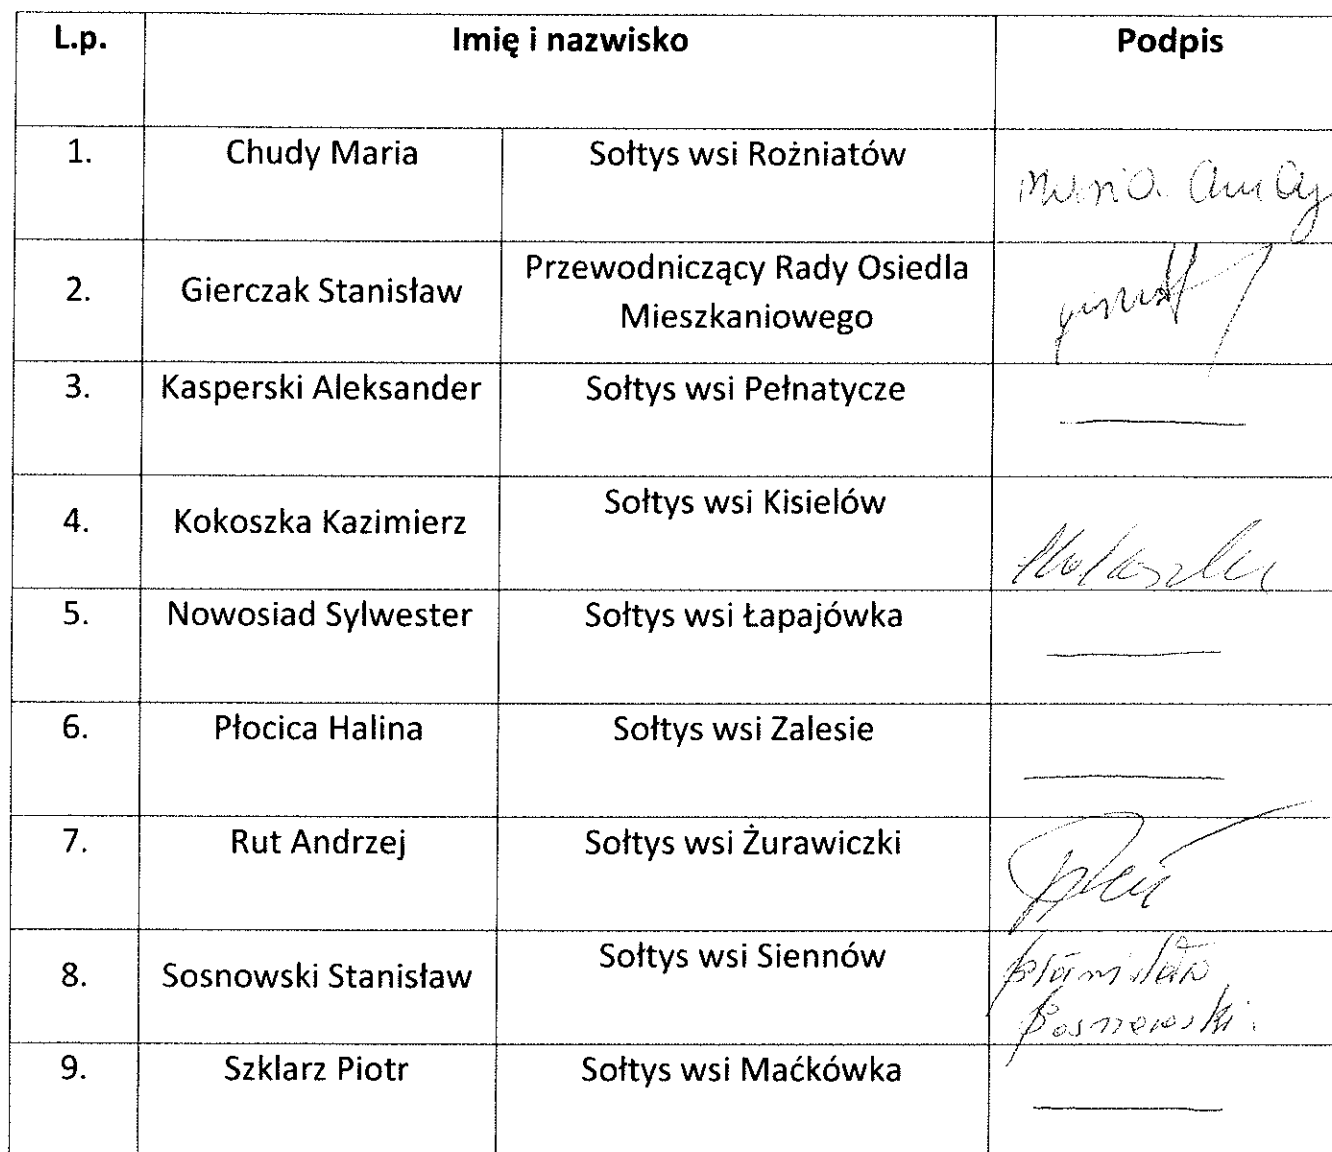 L.p. Imię i nazwisko Podpis
1. Chudy Maria Sołtys wsi Rożniatów Maria Chudy
2. Gierczak Stanisław Przewodniczący Rady Osiedla
Mieszkaniowego
3. Kasperski Aleksander Sołtys wsi Pełnatycze
4. Kokoszka Kazimierz Sołtys wsi Kisielów Kokoszka
5. Nowosiad Sylwester Sołtys wsi Łapajówka
6. Płocica Halina Sołtys wsi Zalesie
7. Rut Andrzej Sołtys wsi Żurawiczki
8. Sosnowski Stanisław Sołtys wsi Siennów Stanisław
Sosnowski
9. Szklarz Piotr Sołtys wsi Maćkówka